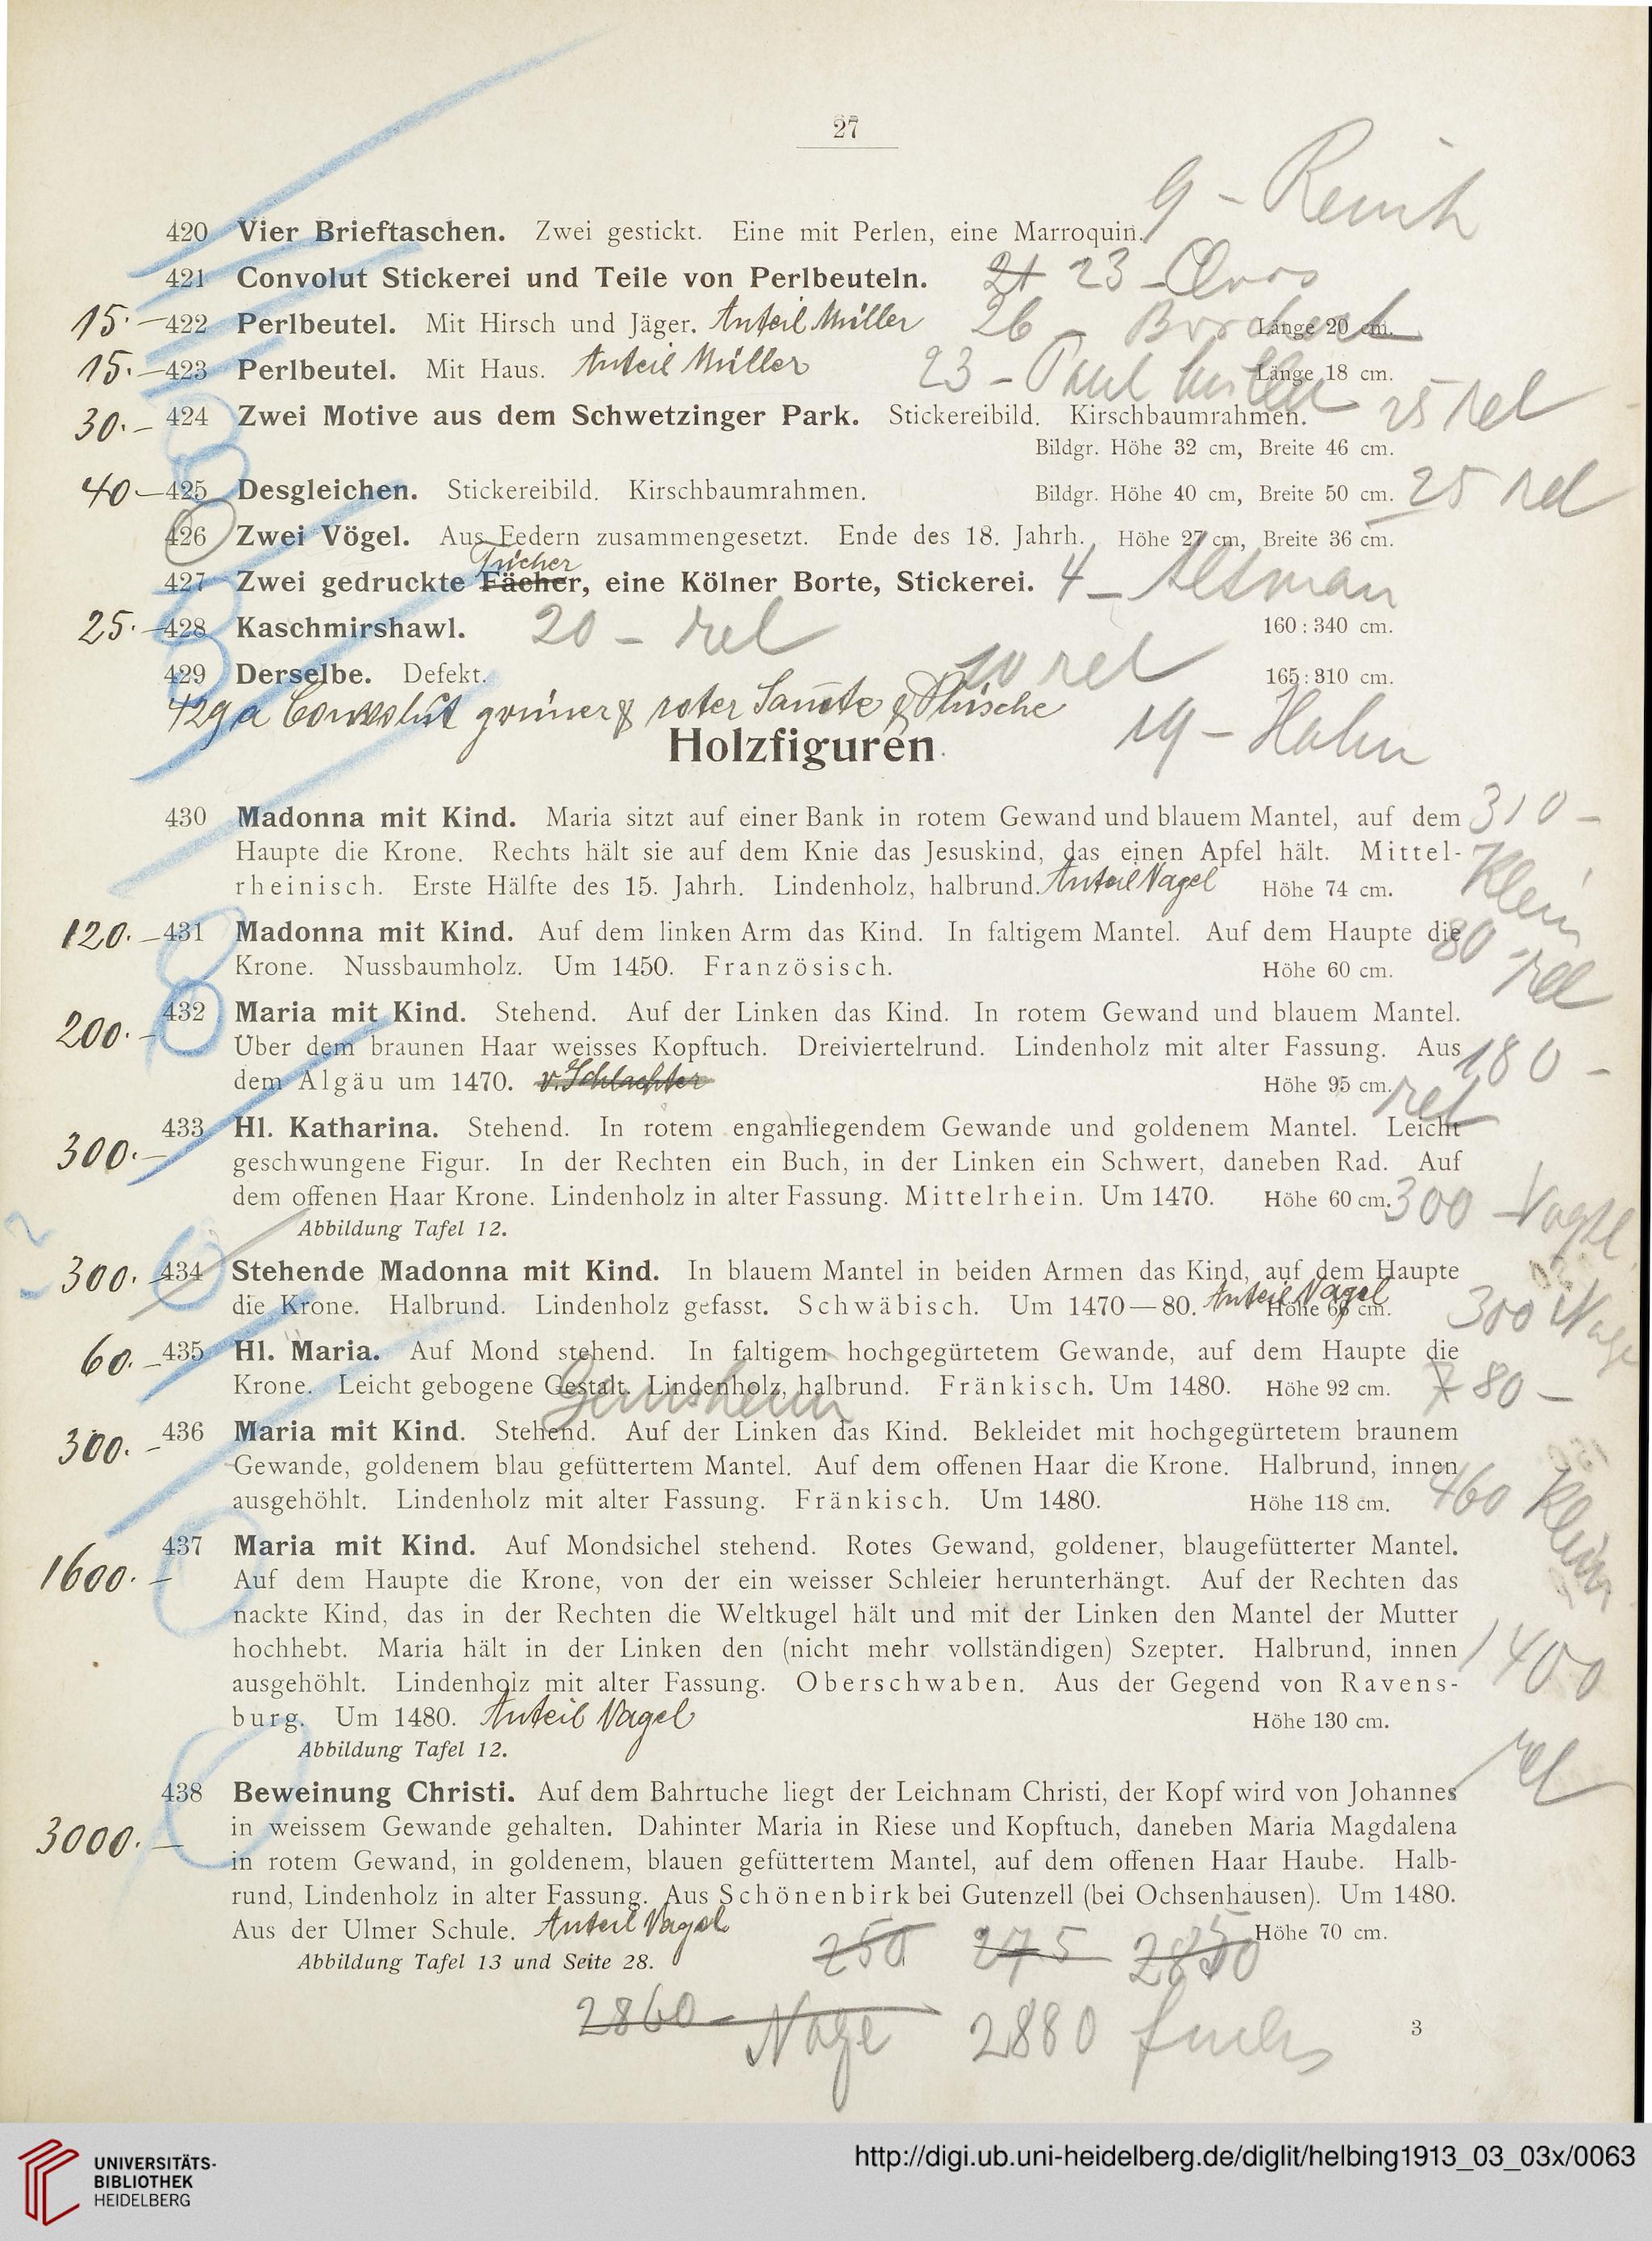 27
9 -
420 Vier Brieftaschen. Zwei gestickt. Eine mit Perlen, eine Marroquin.
421 Convolut Stickerei und Teile von Perlbeuteln. 21 23 -
15.- 422 Perlbeutel. Mit Hirsch und Jäger. Anteil Müller 26 - Länge 20 cm.
15.- 423 Perlbeutel. Mit Haus. Anteil Müller 23 - Paul Müller Länge 18 cm.
30.- 424 Zwei Motive aus dem Schwetzinger Park. Stickereibild. Kirschbaumrahmen. 25 rel
Bildgr. Höhe 32 cm, Breite 46 cm.
40.- 425 Desgleichen. Stickereibild. Kirschbaumrahmen. Bildgr. Höhe 40 cm, Breite 50 cm. 25 rel
426 Zwei Vögel. Aus Federn zusammengesetzt. Ende des 18. Jahrh. Höhe 27 cm, Breite 36 cm.
Tücher
427 Zwei gedruckte Fächer, eine Kölner Borte, Stickerei. 4 - Altman
25.- 428 Kaschmirshawl. 20 - rel 160:340 cm.
429 Derselbe. Defekt. 10 rel 165:310 cm.
429a Convolut grüner & roter Samte & Plüsche 19 - Hahn
Holzfiguren
430 Madonna mit Kind. Maria sitzt auf einer Bank in rotem Gewand und blauem Mantel, auf dem 310 -
Haupte die Krone. Rechts hält sie auf dem Knie das Jesuskind, das einen Apfel hält. Mittel- Klein
rheinisch. Erste Hälfte des 15. Jahrh. Lindenholz, halbrund. Anteil Nagel Höhe 74 cm.
120.- 431 Madonna mit Kind. Auf dem linken Arm das Kind. In faltigem Mantel. Auf dem Haupte die 80 rel
Krone. Nussbaumholz. Um 1450. Französisch. Höhe 60 cm.
200.- 432 Maria mit Kind. Stehend. Auf der Linken das Kind. In rotem Gewand und blauem Mantel.
Über dem braunen Haar weisses Kopftuch. Dreiviertelrund. Lindenholz mit alter Fassung. Aus 180 -
dem Algäu um 1470. v. Schlachter Höhe 95 cm. rel
300.- 433 Hl. Katharina. Stehend. In rotem enganliegendem Gewande und goldenem Mantel. Leicht
geschwungene Figur. In der Rechten ein Buch, in der Linken ein Schwert, daneben Rad. Auf
dem offenen Haar Krone. Lindenholz in alter Fassung. Mittelrhein. Um 1470. Höhe 60 cm. 300 - Vogel
Abbildung Tafel 12.
300.- 434 Stehende Madonna mit Kind. In blauem Mantel in beiden Armen das Kind, auf dem Haupte
die Krone. Halbrund. Lindenholz gefasst. Schwäbisch. Um 1470—80. Anteil Nagel Höhe 66 cm. 300
60.- 435 Hl. Maria. Auf Mond stehend. In faltigem hochgegürtetem Gewande, auf dem Haupte die
Krone. Leicht gebogene Gestalt. Lindenholz, halbrund. Fränkisch. Um 1480. Höhe 92 cm. 80 -
Gernsheim
300.- 436 Maria mit Kind. Stehend. Auf der Linken das Kind. Bekleidet mit hochgegürtetem braunem
Gewande, goldenem blau gefüttertem Mantel. Auf dem offenen Haar die Krone. Halbrund, innen 460 Klein
ausgehöhlt. Lindenholz mit alter Fassung. Fränkisch. Um 1480. Höhe 118 cm.
1600.- 437 Maria mit Kind. Auf Mondsichel stehend. Rotes Gewand, goldener, blaugefütterter Mantel.
Auf dem Haupte die Krone, von der ein weisser Schleier herunterhängt. Auf der Rechten das
nackte Kind, das in der Rechten die Weltkugel hält und mit der Linken den Mantel der Mutter
hochhebt. Maria hält in der Linken den (nicht mehr vollständigen) Szepter. Halbrund, innen 1400
ausgehöhlt. Lindenholz mit alter Fassung. Oberschwaben. Aus der Gegend von Ravens-
burg. Um 1480. Anteil Nagel Höhe 130 cm.
Abbildung Tafel 12. rel
438 Beweinung Christi. Auf dem Bahrtuche liegt der Leichnam Christi, der Kopf wird von Johannes
3000.- in weissem Gewande gehalten. Dahinter Maria in Riese und Kopftuch, daneben Maria Magdalena
in rotem Gewand, in goldenem, blauen gefüttertem Mantel, auf dem offenen Haar Haube. Halb-
rund, Lindenholz in alter Fassung. Aus Schönenbirk bei Gutenzell (bei Ochsenhausen). Um 1480.
Aus der Ulmer Schule. Anteil Nagel Höhe 70 cm.
Abbildung Tafel 13 und Seite 28. 250 275
2860 - Nagel 2880 Fuchs
3
UNIVERSITÄTS-
BIBLIOTHEK
HEIDELBERG
http://digi.ub.uni-heidelberg.de/diglit/helbing1913_03_03x/0063